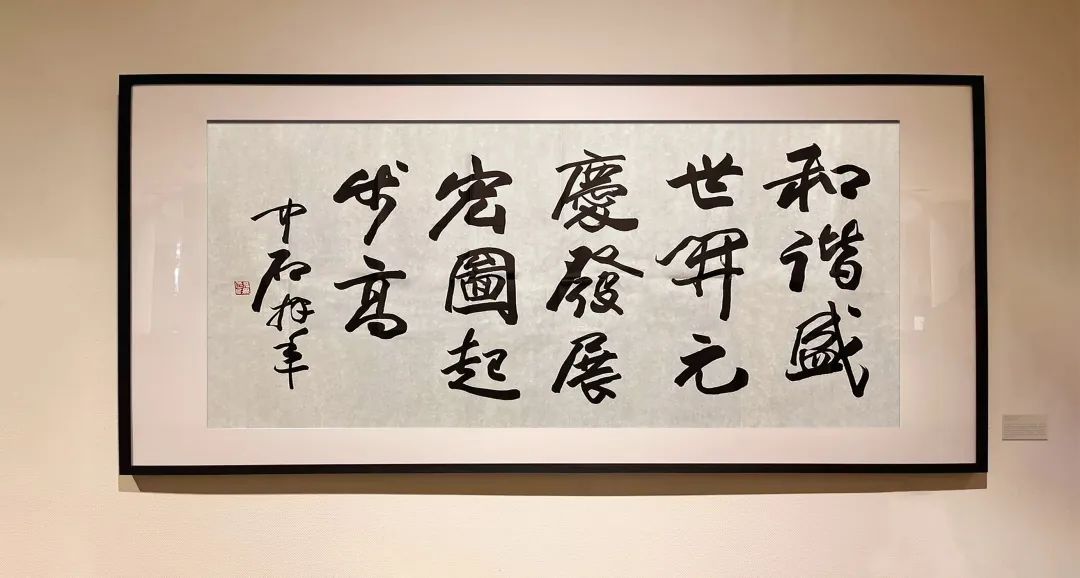 和谐盛
世開元
慶發展
宏圖起
步高
中石拜年